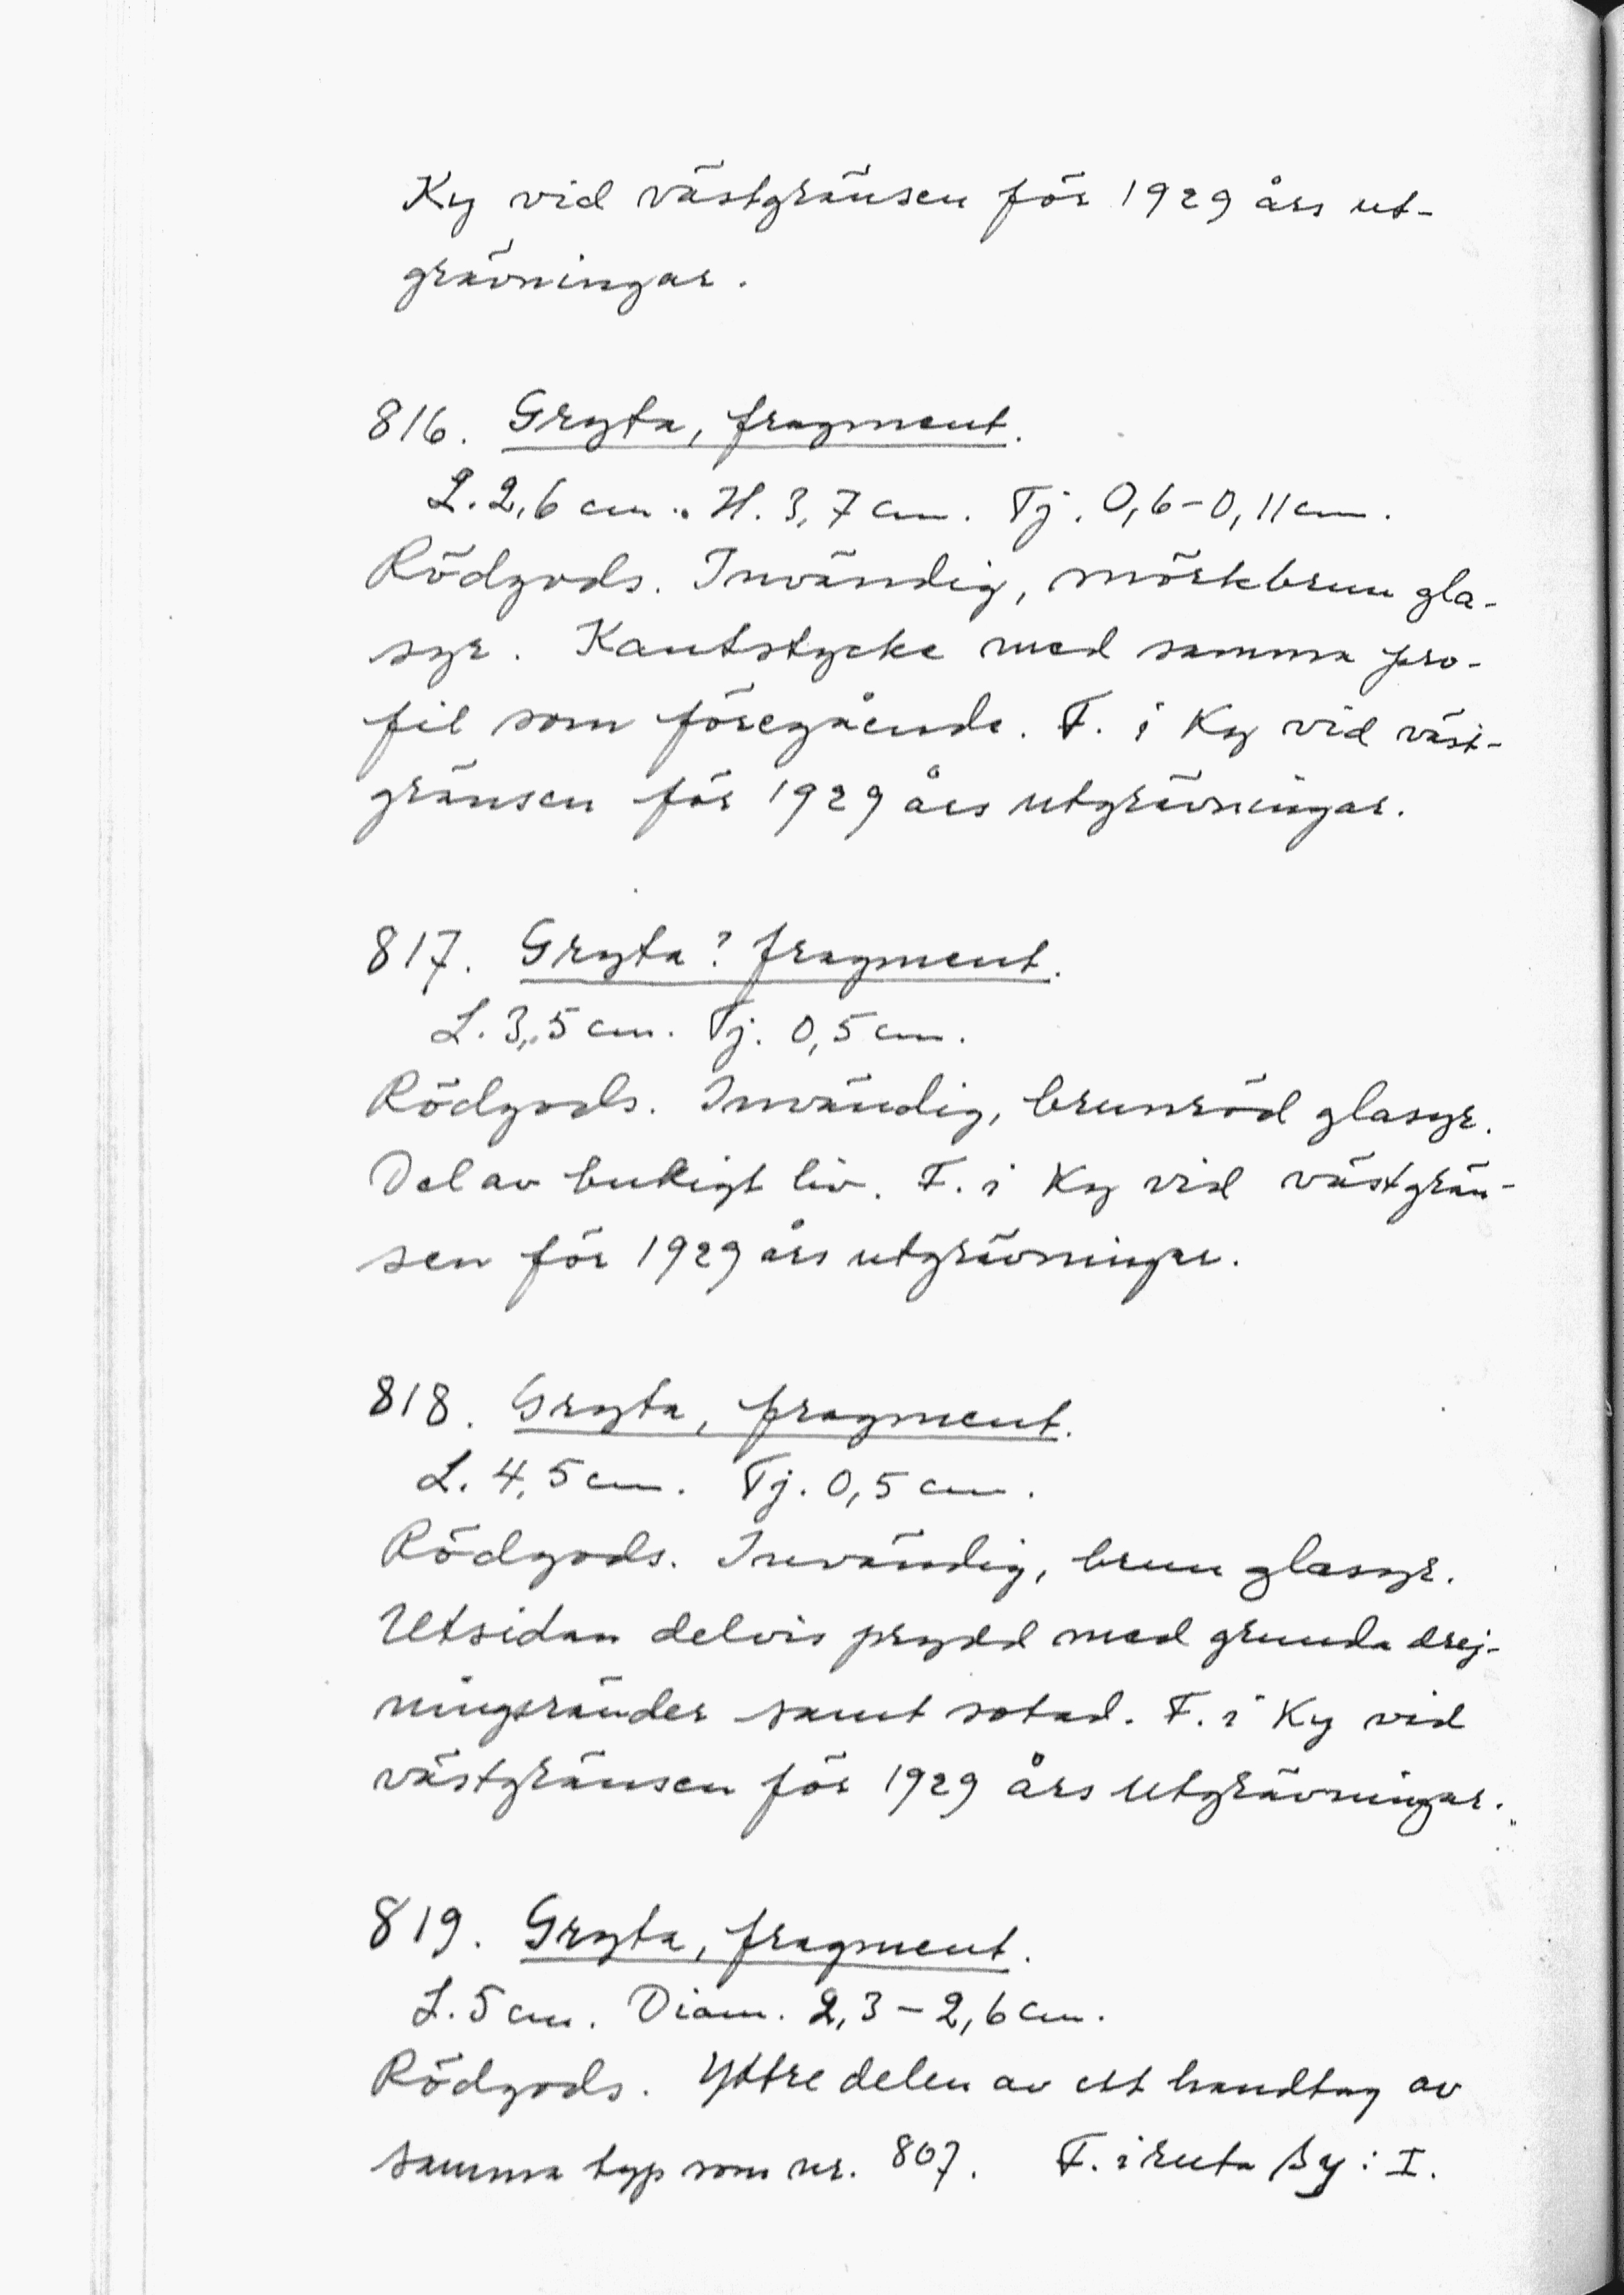 Ky vid västgränsen för 1929 års ut-
grävningar.
816. Gryta, fragment.
L. 2,6 cm. H. 3,7 cm. Tj. 0,6-0,11 cm.
Rödgods. Invändig, mörkbrun gla-
syr. Kantstycke med samma pro-
fil som föregående. F. i Ky vid väst-
gränsen för 1929 års utgrävningar.
817. Gryta? fragment.
L. 3,5 cm. Tj. 0,5 cm.
Rödgods. Invändig, brunröd glasyr.
Del av bukigt liv. F. i Ky vid västgrän-
sen för 1929 års utgrävningar.
818. Gryta, fragment.
L. 4,5 cm. Tj. 0,5 cm.
Rödgods. Invändig, brun glasyr.
Utsidan delvis prydd med grunda drej-
ningsränder samt sotad. F. i Ky vid
västgränsen för 1929 års utgrävningar.
819. Gryta, fragment.
L. 5 cm. Diam. 2,3-2,6 cm.
Rödgods. Yttre delen av ett handtag av
samma typ som nr. 807. F. i ruta By: I.